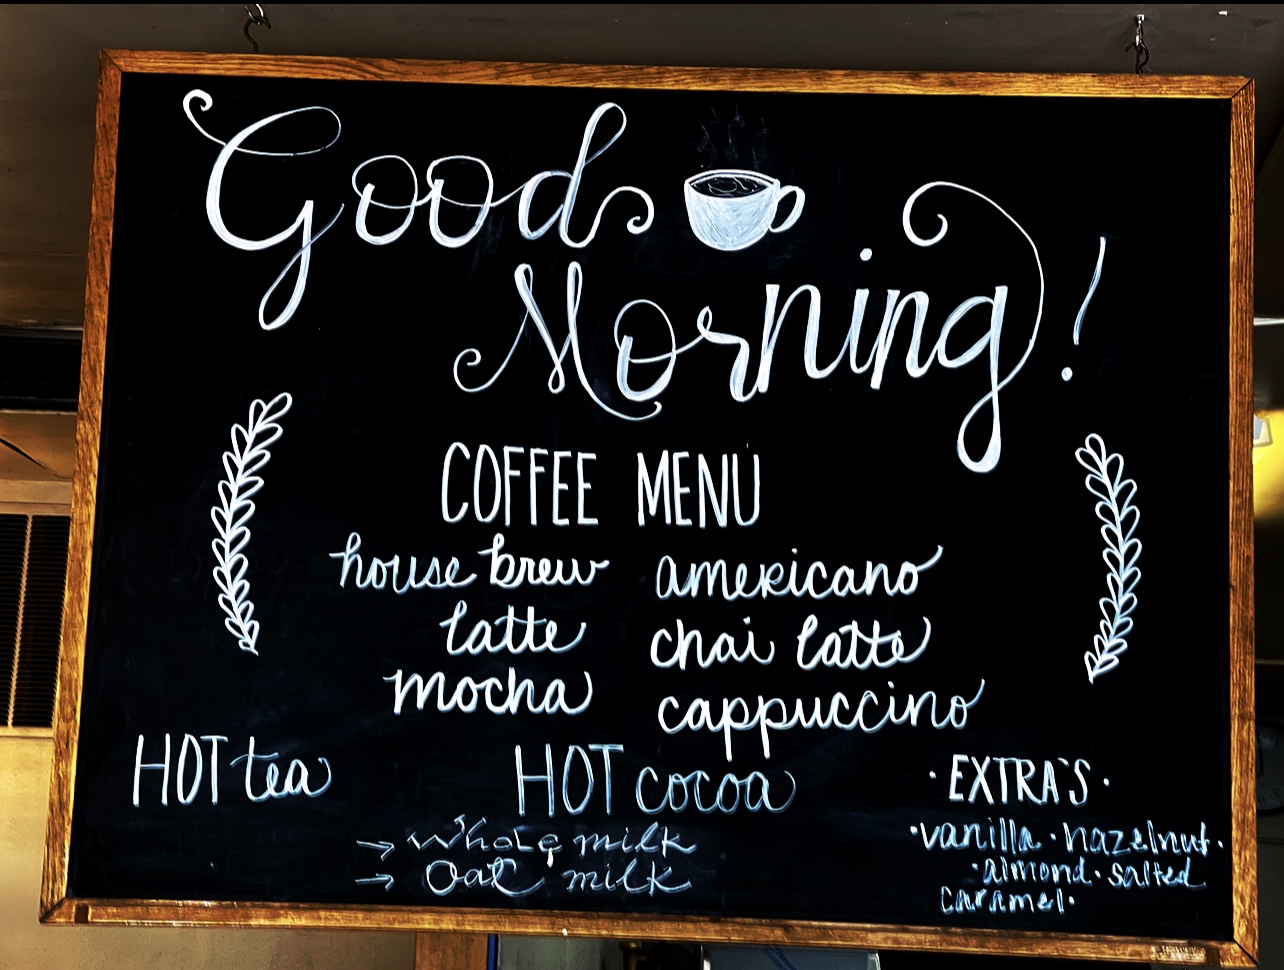 Good
Morning!
COFFEE MENU
house brew americano
latte chai latte
mocha cappuccino
HOT tea HOT cocoa
→ Whole milk
→ Oat milk
· EXTRA'S ·
· vanilla · hazelnut ·
· almond · salted
caramel ·